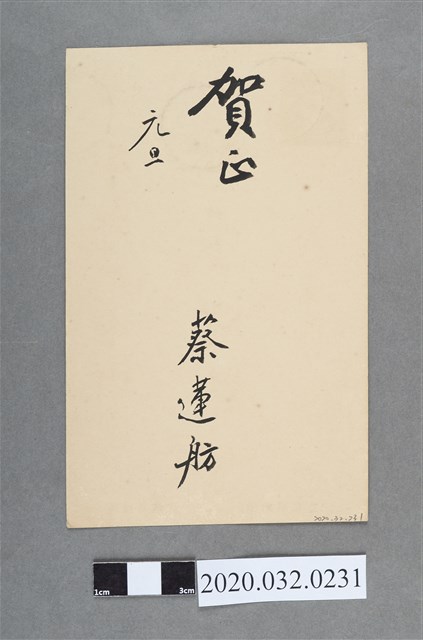 賀正
元旦
蔡蓮舫
2020.32.231
1cm
3cm
2020.032.0231